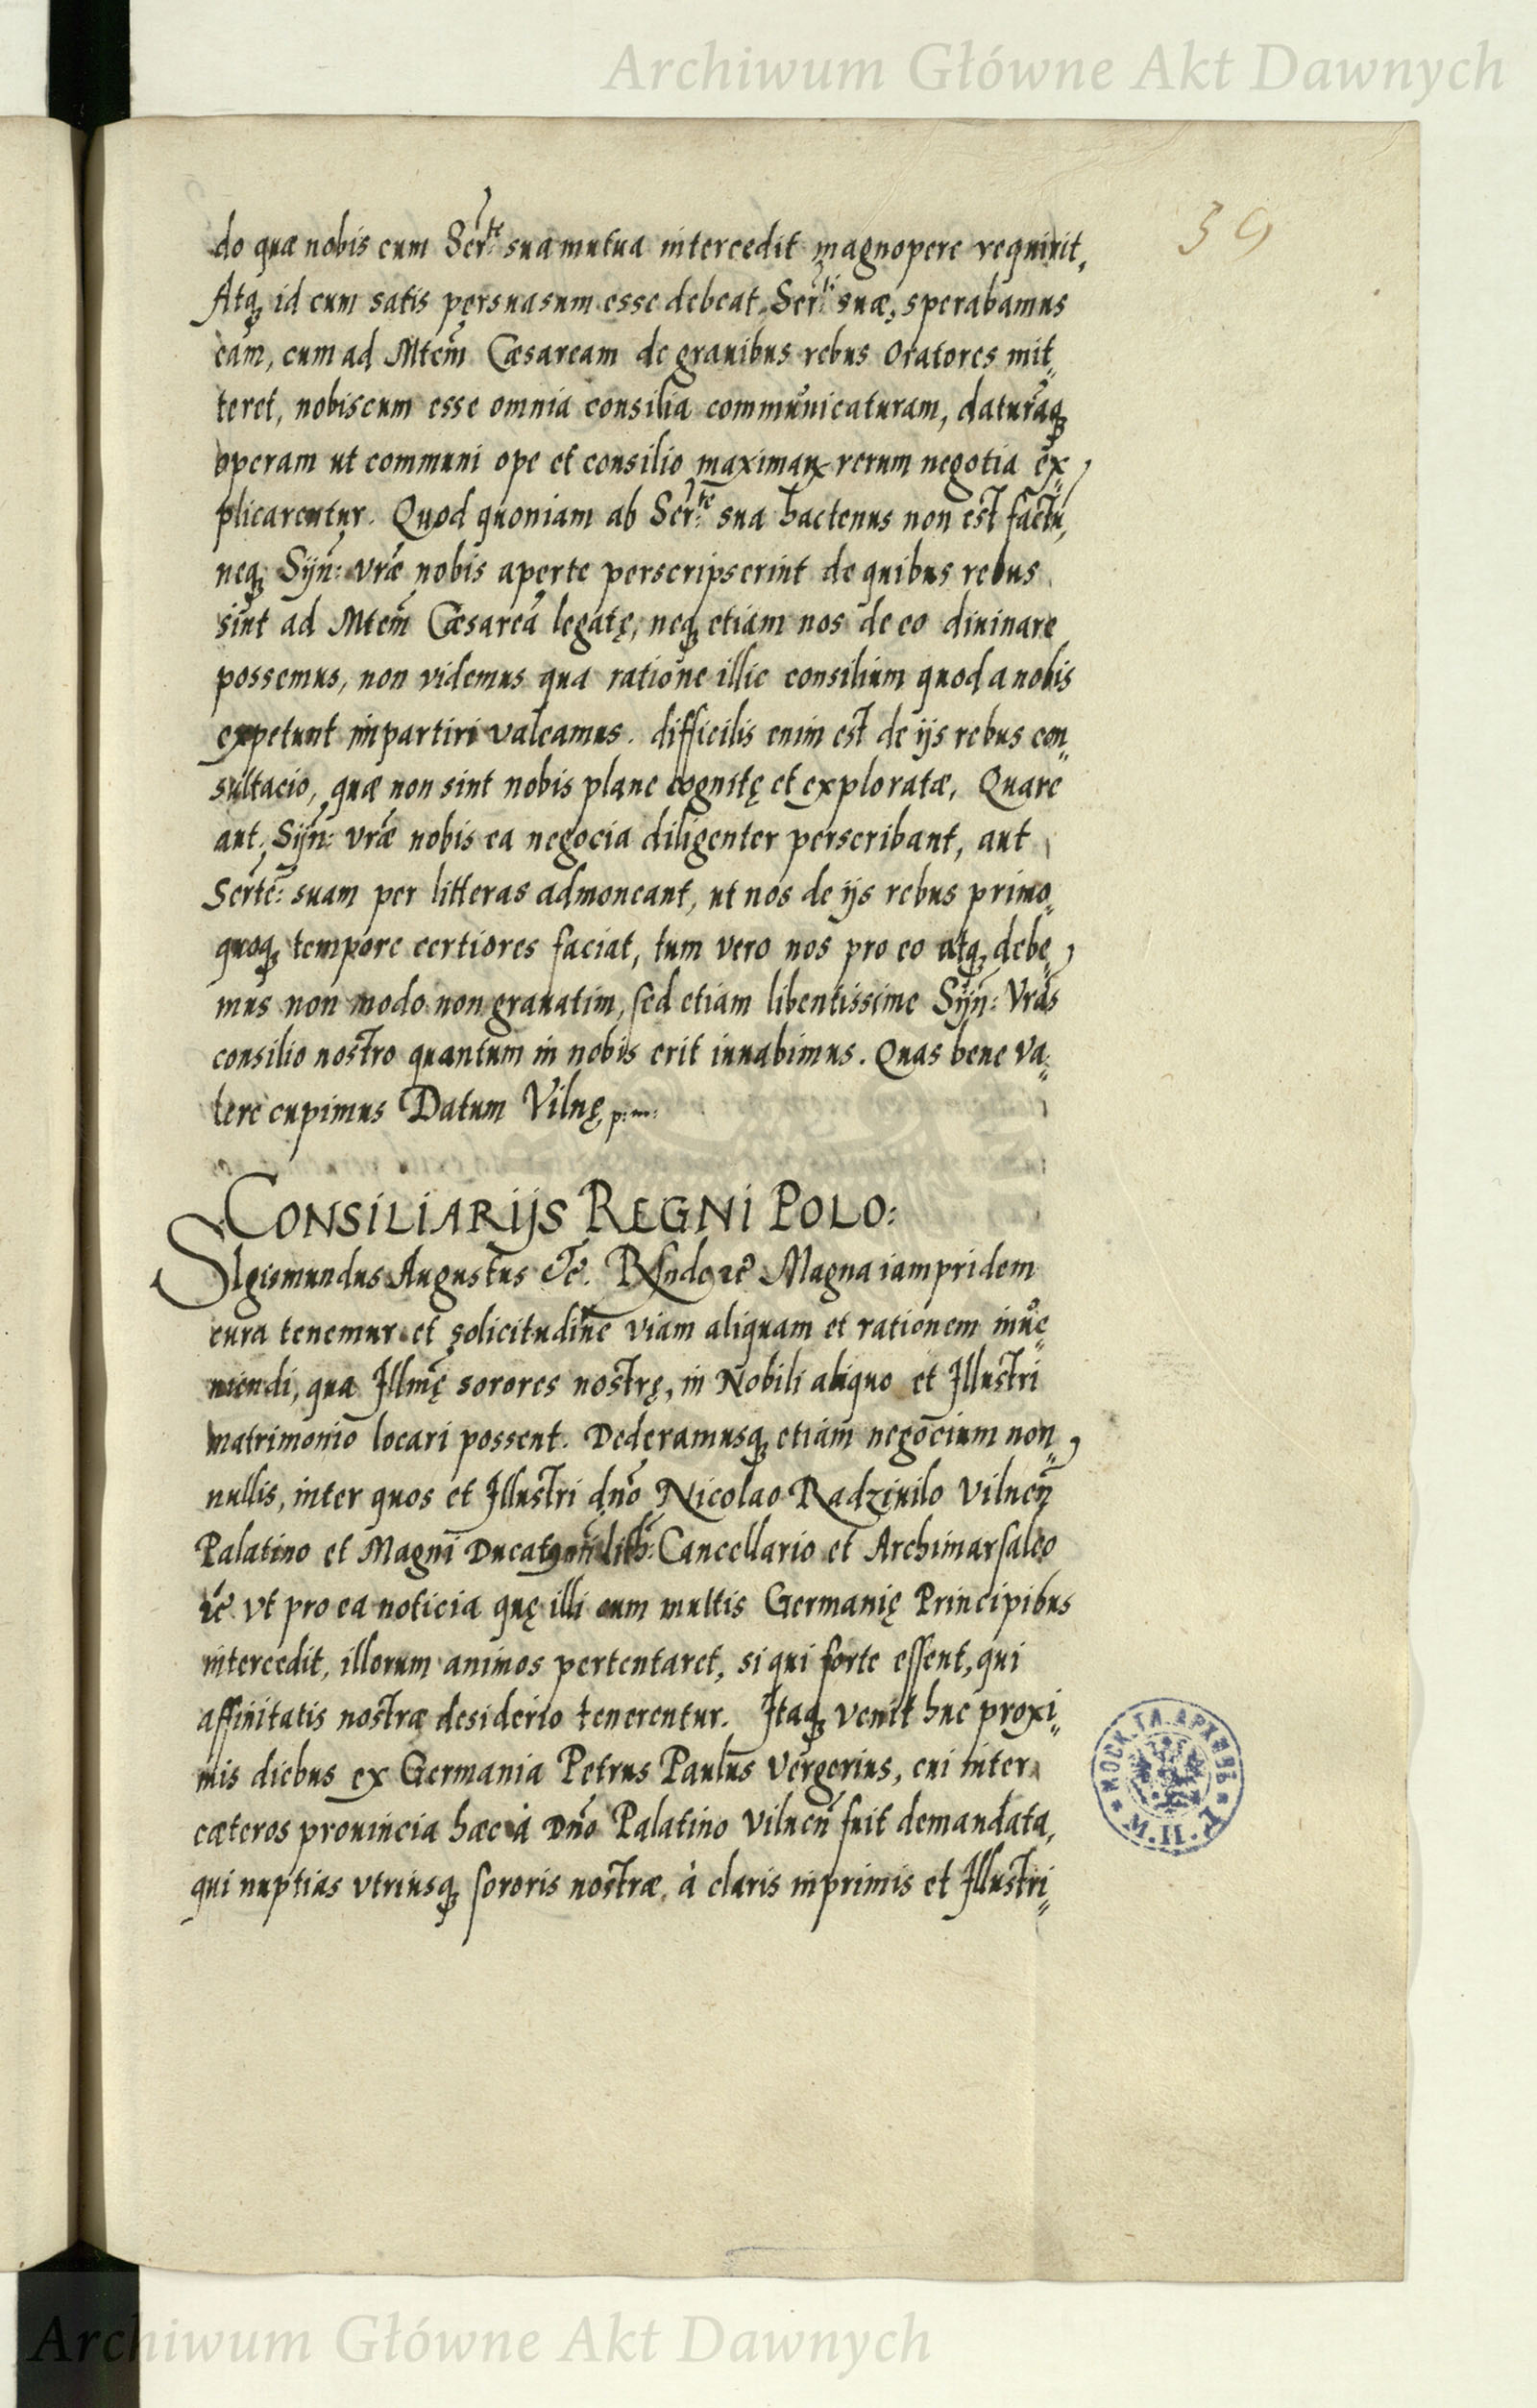 Archiwum Główne Akt Dawnych
39
do quæ nobis cum Ser:te sua mutua intercedit magnopere requirit,
Atq́ȝ id cum satis persuasum esse debeat Ser:ti suæ, sperabamus
eam, cum ad Mtem̃ Cæsaream de grauibus rebus Oratores mit„
teret, nobiscum esse omnia consilia communicaturam, daturāqȝ
operam ut communi ope et consilio maximaꝝ rerum negotia ex„
plicarentur. Quod quoniam ab Ser:te sua hactenus non est factū,
neqȝ Syn̄: vr̃æ nobis aperte perscripserint de quibus rebus
sint ad Mtem̃ Cæsareā legatę, neqȝ etiam nos de eo diuinare
possemus, non videmus qua ratione illic consilium quod a nobis
expetunt inpartiri valeamus. difficilis enim est de ijs rebus con„
sultacio, quæ non sint nobis plane cognitę et exploratæ, Quare
aut Syn̄: vr̃æ nobis ea negocia diligenter perscribant, aut
Sertē: suam per litteras admoneant, ut nos de ijs rebus primo„
quoqȝ tempore certiores faciat, tum vero nos pro eo atqȝ debe„
mus non modo non grauatim, sed etiam libentissime Syn̄: Vrãs
consilio nostro quantum in nobis erit iuuabimus. Quas bene va„
lere cupimus Datum Vilnę, p:m:
CONSILIARIJS REGNI POLO:
SIgismundus Augustus &c̃. Rsndo ꝛc̃ Magna iampridem
cura tenemur et solicitudine viam aliquam et rationem inue„
niendi, qua Illmę̃ sorores nostrę, in Nobili aliquo et Illustri
matrimonio locari possent. Dederamusqȝ etiam negocium non„
nullis, inter quos et Illustri dño Nicolao Radziuilo Vilneñ
Palatino et Magni Ducatus Lith: Cancellario et Archimarsalco
ꝛc̃ vt pro ea noticia quę illi cum multis Germanię Principibus
intercedit, illorum animos pertentaret, si qui forte essent, qui
affinitatis nostræ desiderio tenerentur. Itaqȝ venit huc proxi„
mis diebus ex Germania Petrus Paulus Vergerius, cui inter
cæteros prouincia hæc à Dño Palatino Vilneñ fuit demandata,
qui nuptias vtriusqȝ sororis nostræ, à claris inprimis et Illustri„
МОСК. ГЛ. АРХИВЪ
М. И. Д.
Archiwum Główne Akt Dawnych